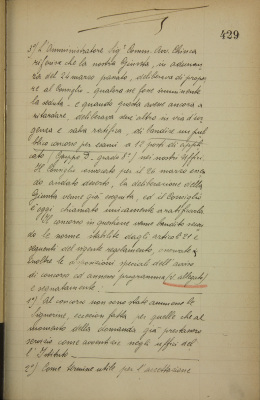 429
3°) L'Amministratore Sig. Comm. Avv. Chiesa
riferisce che la nostra Giunta, in adunan-
za del 24 marzo passato, deliberava di propor-
re al Consiglio, qualora ne fosse imminente
la seduta, e quando questa avesse ancora a
ritardare, deliberava senz'altro in via d'ur-
genza e salva ratifica, di bandire un pub-
blico concorso per esami a 12 posti di appli-
cato (Gruppo , grado 8°) nei nostri uffici.
Il Consiglio convocato per il 26 marzo essen-
do andato deserto, la deliberazione della
Giunta venne già eseguita, ed il Consiglio
è oggi chiamato unicamente a ratificarla.
Il concorso in questione venne bandito secon-
do le norme stabilite dagli articoli 21 e
seguenti del vigente regolamento, nonché
inoltre le disposizioni speciali dell'avviso
di concorso ed annesso programma, (v. allegato)
e segnatamente:
1°) Al concorso non sono state ammesse le
Signorine, eccezion fatta per quelle che al
momento della domanda già prestavano
servizio come avventizie negli uffici del-
l'Istituto.
2°) Come termine utile per l'accettazione